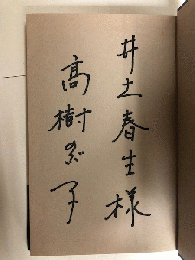 井上春生様
高樹のぶ子